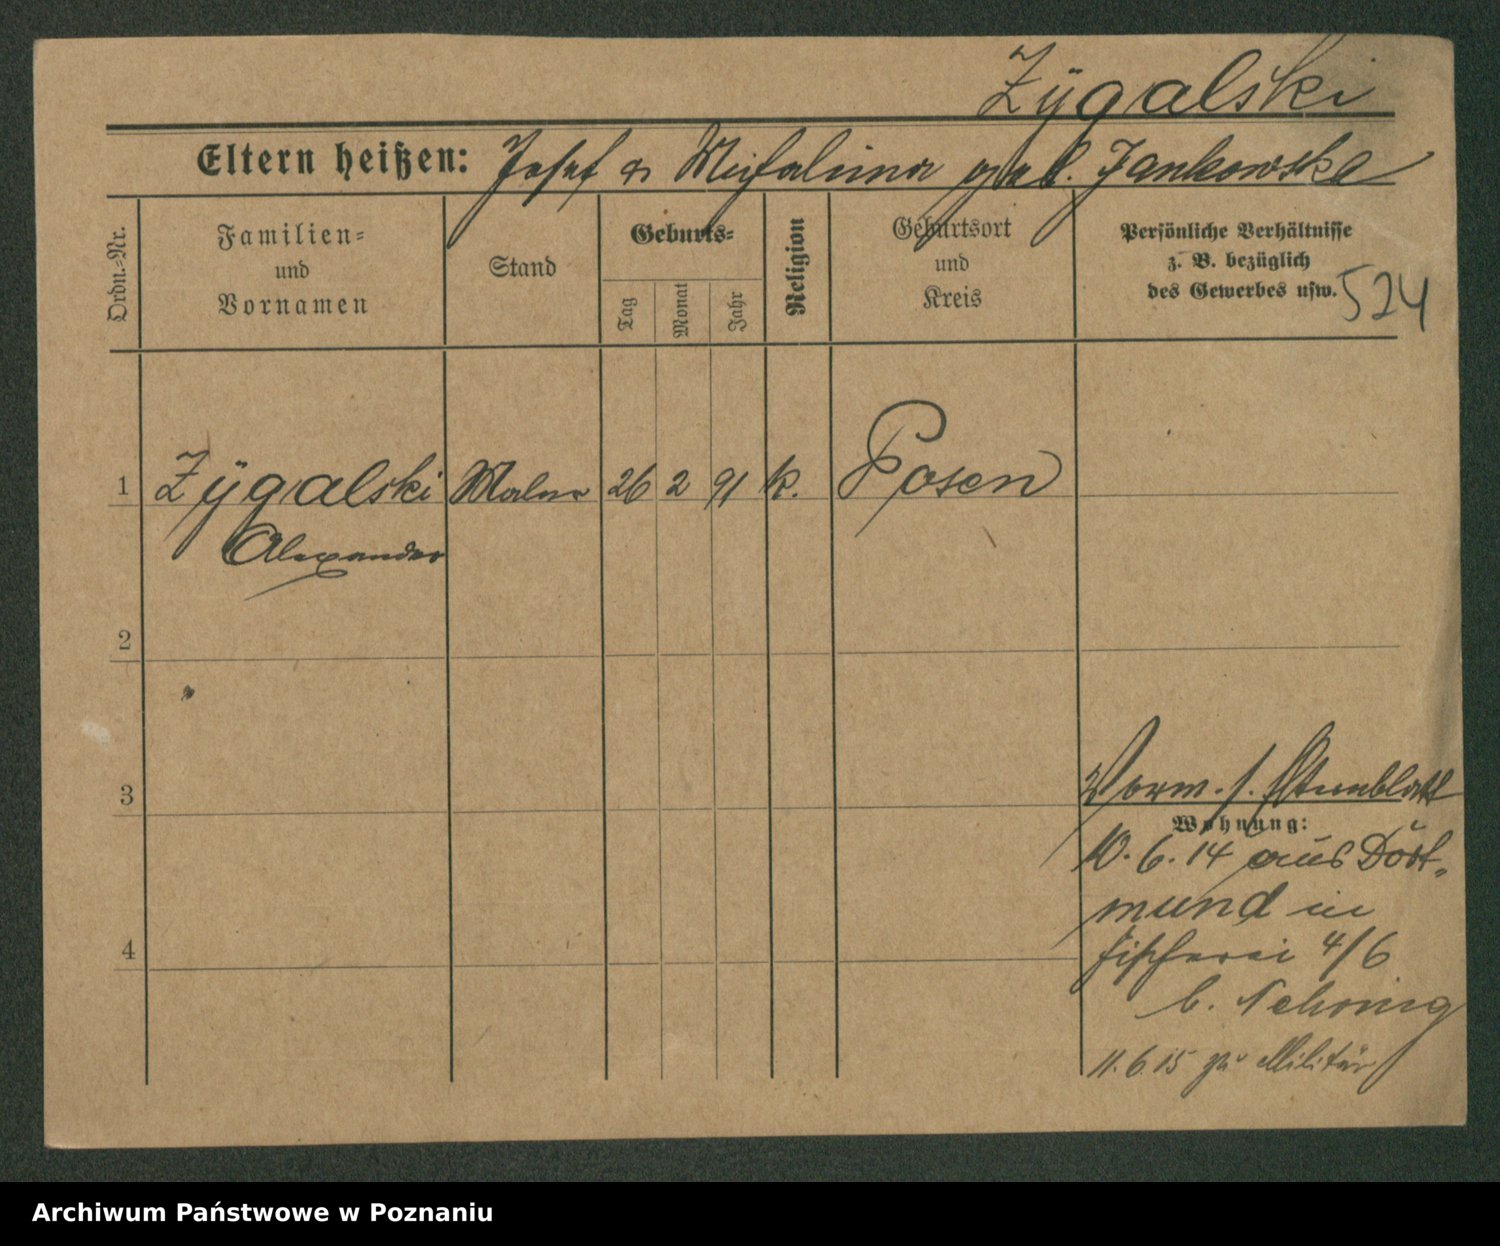 Zÿgalski
Eltern heißen: Josef & Michalina geb. Jankowska
Ordn.-Nr.
Familien-
und
Vornamen
Stand
Geburts-
Tag
Monat
Jahr
Religion
Geburtsort
und
Kreis
Persönliche Verhältnisse
z. B. bezüglich
des Gewerbes usw.
524
1 Zÿgalski Maler 26 2 91 k. Posen
Alexander
2
3
Vorm. s. Stammblatt
Wohnung:
10. 6. 14 aus Dort-
mund in
Fischerei 4/6
b.
4
11. 6. 15 zu Militär
Archiwum Państwowe w Poznaniu